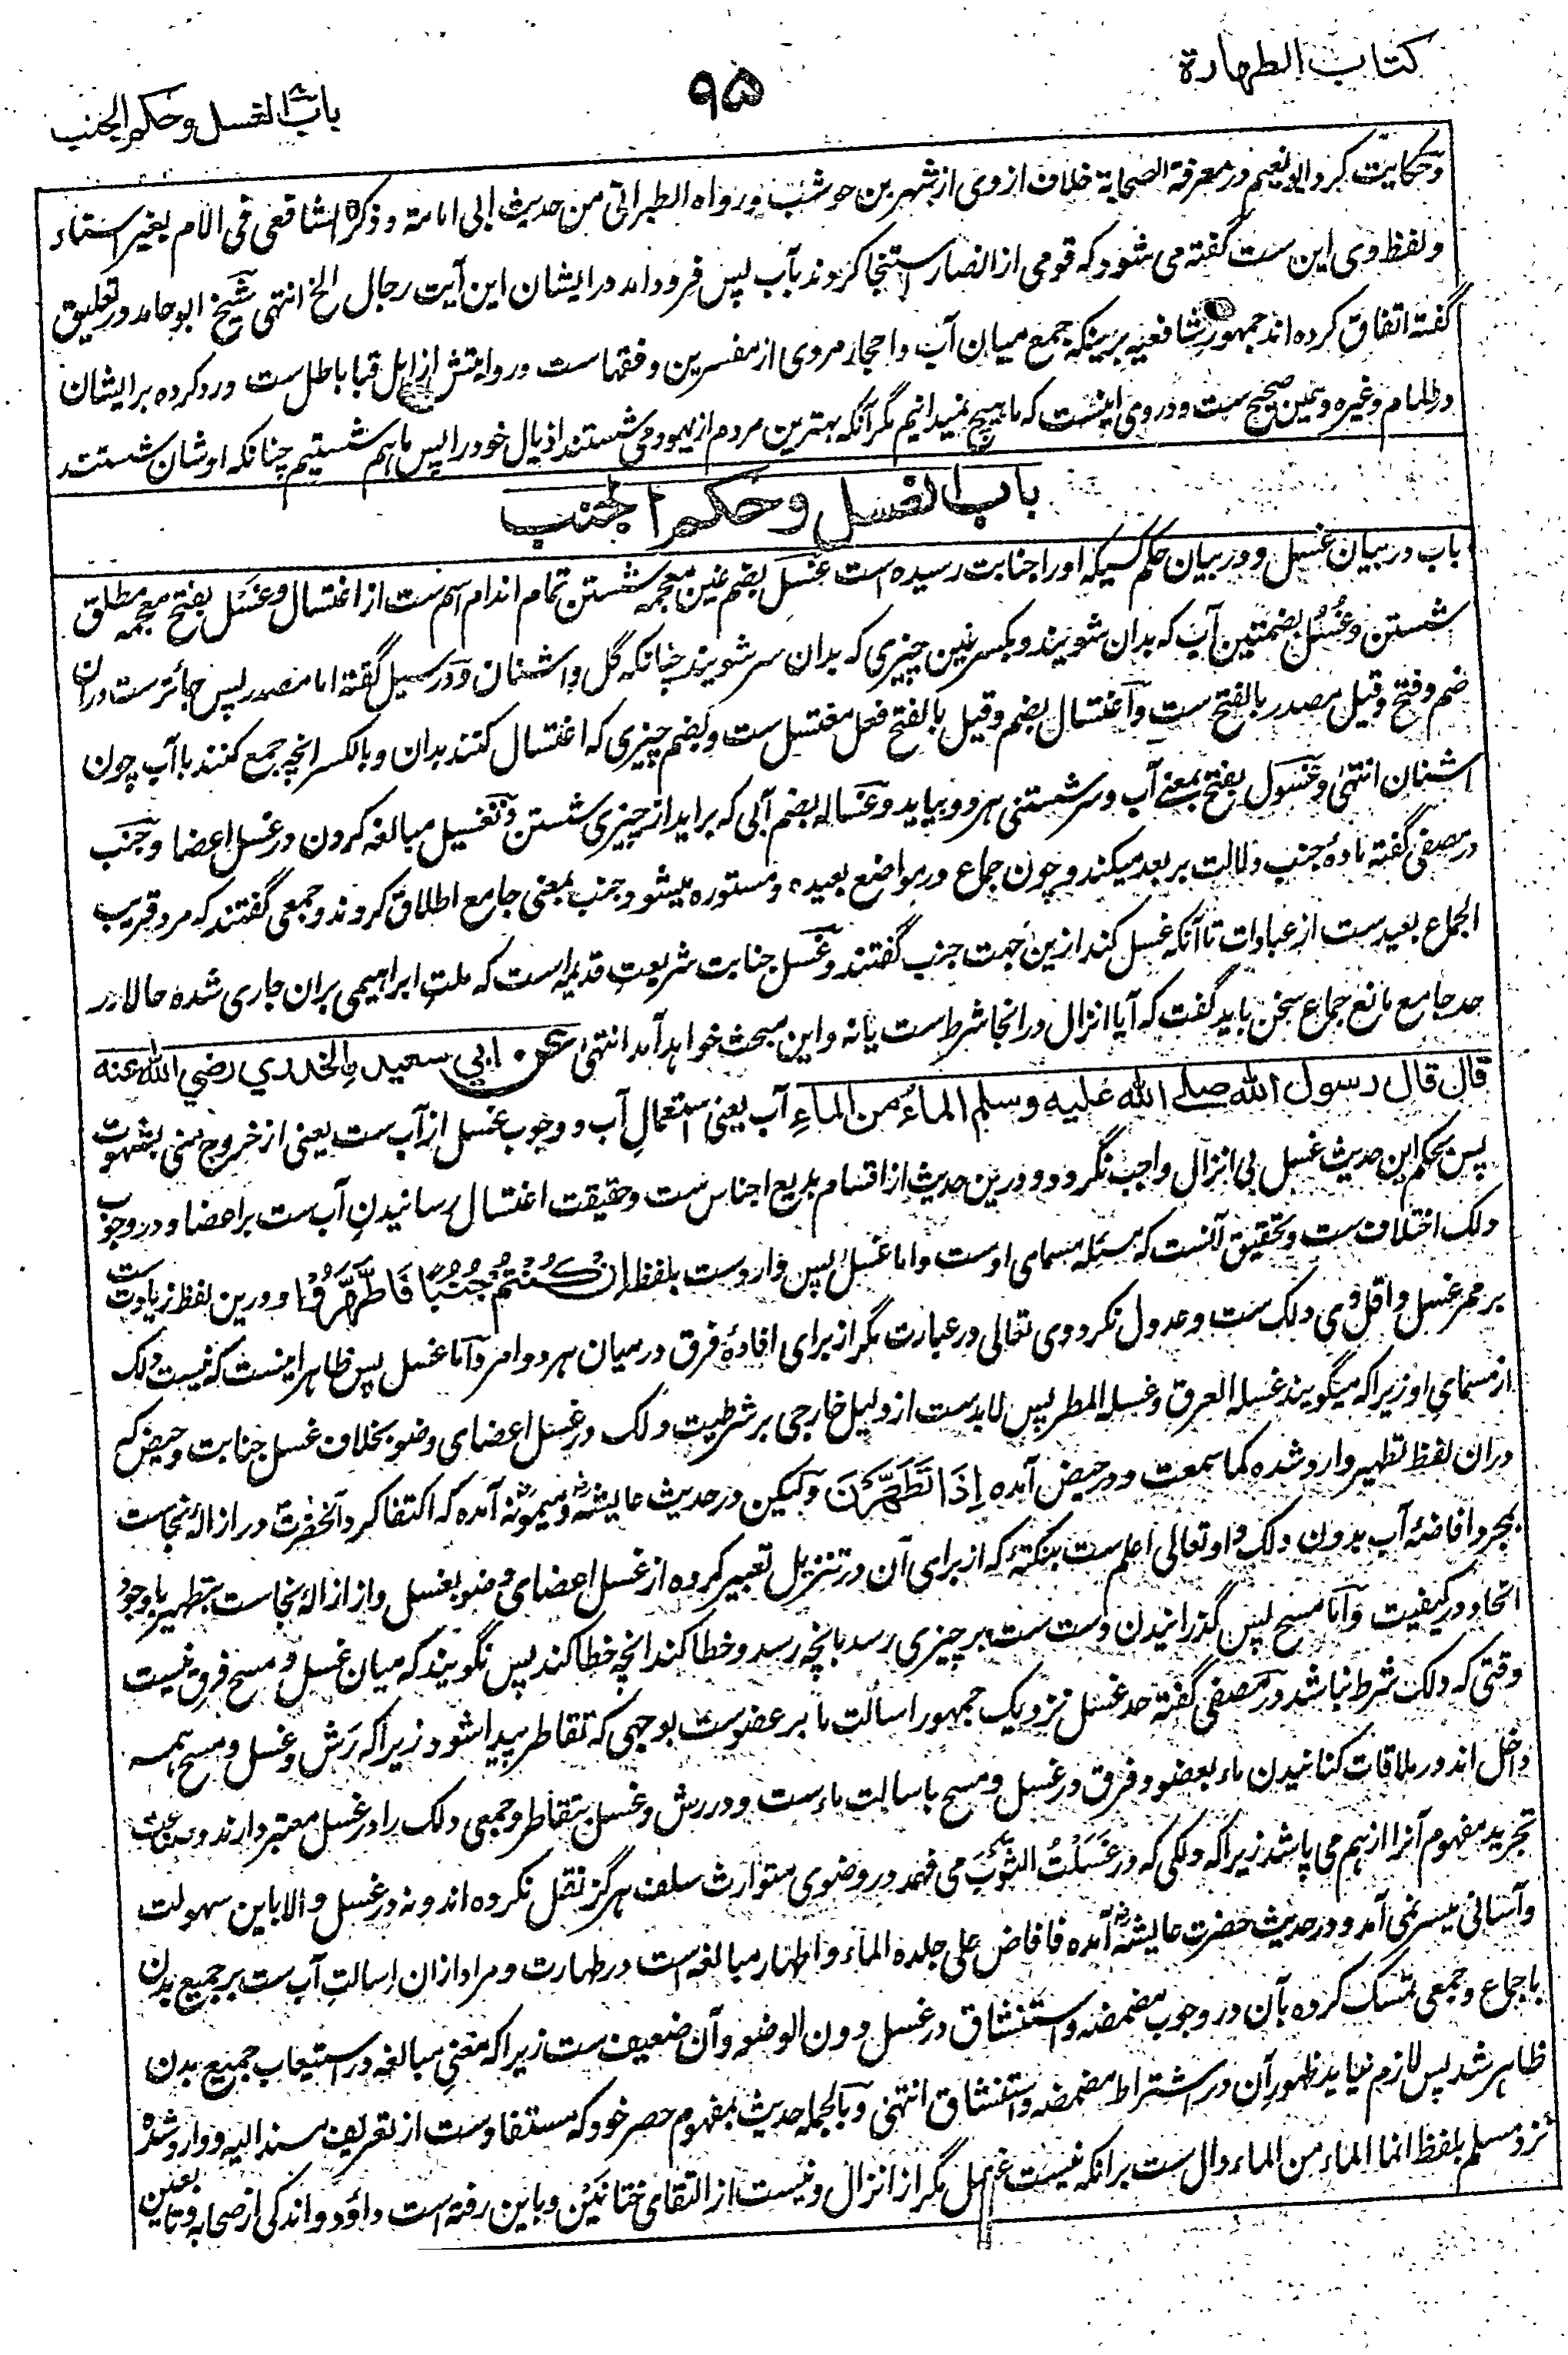 کتاب الطهارة
۹۵
باب الغسل وحکم الجنب
وحکایت کرد ابو نعیم در معرفة الصحابة خلاف از وی از شهر بن حوشب ورواه الطبرانی من حدیث ابی امامة وذکره الشافعی فی الام بغیر اسناد
ولفظ وی این ست گفته می شود که قومی از انصار استنجا کردند بآب پس فرود آمد در ایشان این آیت رجال الخ انتهی شیخ ابو حامد در تعلیق
گفته اتفاق کرده اند جمهور شافعیه برینکه جمع میان آب واحجار مروی از مفسرین وفقهاست وروایتش از اهل قبا باطل ست ورد کرده بر ایشان
در المام وغیره وهمین صحیح ست ودر وی اینست که ما هیچ نمیدانیم مگر آنکه بهترین مردم از یهود می شستند اذیال خود را پس ما هم شستیم چنانکه اوشان شستند
باب الغسل وحکم الجنب
باب در بیان غسل ودر بیان حکم کسیکه او را جنابت رسیده است غسل بضم غین معجمه شستن تمام اندام اسم ست از اغتسال وغَسل بفتح معجمه مطلق
شستن وغُسُل بضمتین آب که بدان شویند وبکسر غین چیزی که بدان سر شویند چنانکه گل واشنان ودر سیل گفته اما مصدر پس جائزست دران
ضم وفتح وقیل مصدر بالفتح ست واغتسال بضم وقیل بالفتح فعل مغتسل ست وبضم چیزی که اغتسال کنند بدان وبالکسر انچه جمع کنند با آب چون
اشنان انتهی وغسول بفتح بمعنے آب وسر شستنی هر دو بیاید وغساله بضم آبی که بر اید از چیزی شستن وتغسیل مبالغه کردن در غسل اعضا وجنب
در مصفی گفته مادهٔ جنب دلالت بر بعد میکند وچون جماع در مواضع بعیده ومستوره میشود جنب بمعنی جامع اطلاق کردند وجمعی گفتند که مرد قریب
الجماع بعیدست از عبادات تا آنکه غسل کند ازین جهت جنب گفتند وغسل جنابت شریعت قدیمه است که ملتِ ابراهیمی بران جاری شده حالا در
حد جامع مانع جماع سخن باید گفت که آیا انزال در انجا شرط ست یا نه واین مبحث خواهد آمد انتهی عن ابی سعید الخدری رضی الله عنه
قال قال رسول الله صلی الله علیه وسلم الماءُ من الماءِ آب یعنی استعمال آب ووجوب غسل از آب ست یعنی از خروج منی بشهوت
پس بحکم این حدیث غسل بی انزال واجب نگردد ودرین حدیث از اقسام بدیع اجناس ست وحقیقت اغتسال رسانیدن آب ست بر اعضا ودر وجوب
دلک اختلاف ست وتحقیق آنست که مسئله مسمای اوست واما غسل پس وارد ست بلفظ اِن کُنْتُمْ جُنُبًا فَاطَّهَّرُوْا ودرین لفظ زیادت ست
بر مجرد غسل واقل وی دلک ست وعدول نکرد وی تعالی در عبارت مگر از برای افادهٔ فرق در میان هر دو امر واما غسل پس ظاهر اینست که نیست دلک
از مسمای او زیرا که میگویند غسله العرق وغسله المطر پس لابدست از دلیل خارجی بر شرطیت دلک در غسل اعضای وضو بخلاف غسل جنابت وحیض که
دران لفظ تطهیر وارد شده کما سمعت ودر حیض آمده اِذَا تَطَهَّرْنَ ولیکن در حدیث عایشه ومیمونه آمده که اکتفا کرد آنحضرت در ازالهٔ نجاست
بمجرد افاضهٔ آب بدون دلک واو تعالی اعلم ست بنکتهٔ که از برای آن در تنزیل تعبیر کرده از غسل اعضای وضو بغسل واز ازالهٔ نجاست بتطهیر باوجود
اتحاد در کیفیت واما مسح پس گذرانیدن دست ست بر چیزی رسد بانچه رسد وخطا کند انچه خطا کند پس نگویند که میان غسل ومسح فرق نیست
وقتی که دلک شرط نباشد در مصفی گفته حد غسل نزدیک جمهور اسالت ما بر عضوست بوجهی که تقاطر پیدا شود زیرا که رَش وغسل ومسح همه
داخل اند در ملاقات کنانیدن ماء بعضو وفرق در غسل ومسح باسالت ماءست ودر رش وغسل بتقاطر وجمعی دلک را در غسل معتبر دارند
تجرید مفهوم آنرا از هم می پاشد زیرا که دلکی که در غَسَلْتُ الثوبَ می فهمد در وضوی متوارث سلف هرگز نقل نکرده اند ونه در غسل والا باین سهولت
وآسانی میسر نمی آمد ودر حدیث حضرت عایشه آمده فافاض علی جلده الماء واطهار مبالغه است در طهارت ومراد ازان اسالتِ آب ست بر جمیع بدن
باجماع وجمعی تمسک کرده بآن در وجوب مضمضه واستنشاق در غسل دون الوضوء وآن ضعیف ست زیرا که معنی مبالغه در استیعاب جمیع بدن
ظاهر شد پس لازم نیاید ظهور آن در اشتراط مضمضه واستنشاق انتهی وبالجمله حدیث بمفهوم حصر خود که مستفادست از تعریف مسند الیه ووارد شده
نزد مسلم بلفظ انما الماء من الماء دال ست برانکه نیست غسل مگر از انزال ونیست از التقای ختانین وباین رفته است داؤد واندکی از صحابه وتابعین